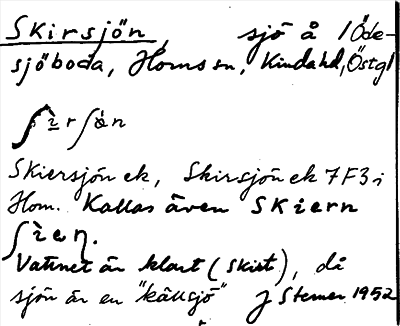 Skirsjön, sjö å /Öde-
sjöboda, Horns sn, Kinda hd, Östgl
ʃìrʃön
Skiersjön ek, Skirsjön ek 7F3i
Horn. Kallas även Skiern
ʃìeŋ.
Vattnet är klart (skirt), då
sjön är en "källsjö" J Sterner 1952